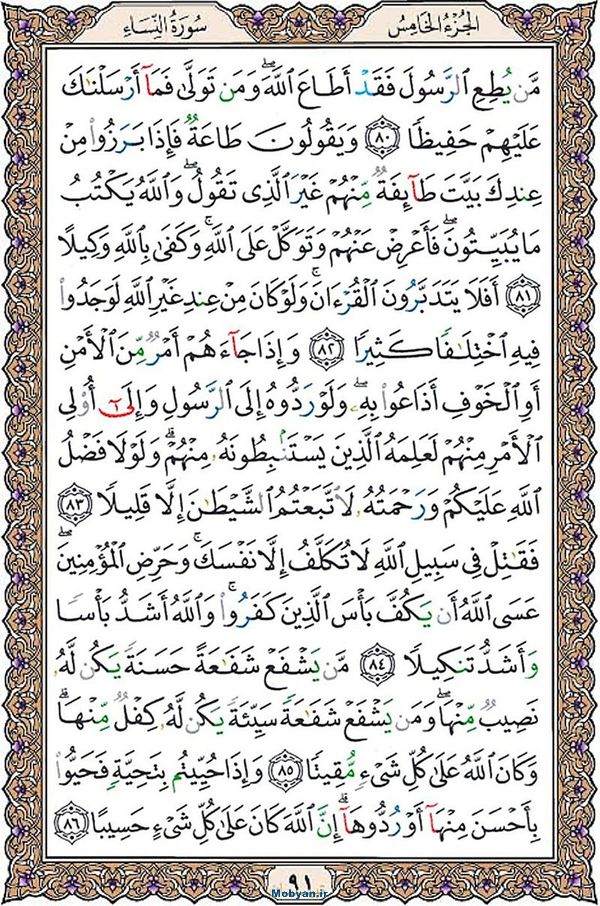 سُورَةُ النِّسَاءِ
الجُزْءُ الخَامِسُ
مَّن يُطِعِ ٱلرَّسُولَ فَقَدْ أَطَاعَ ٱللَّهَۖ وَمَن تَوَلَّىٰ فَمَآ أَرْسَلْنَٰكَ
عَلَيْهِمْ حَفِيظًا ﴿٨٠﴾ وَيَقُولُونَ طَاعَةٌ فَإِذَا بَرَزُوا۟ مِنْ
عِندِكَ بَيَّتَ طَآئِفَةٌ مِّنْهُمْ غَيْرَ ٱلَّذِى تَقُولُۖ وَٱللَّهُ يَكْتُبُ
مَا يُبَيِّتُونَۖ فَأَعْرِضْ عَنْهُمْ وَتَوَكَّلْ عَلَى ٱللَّهِۚ وَكَفَىٰ بِٱللَّهِ وَكِيلًا
﴿٨١﴾ أَفَلَا يَتَدَبَّرُونَ ٱلْقُرْءَانَۚ وَلَوْ كَانَ مِنْ عِندِ غَيْرِ ٱللَّهِ لَوَجَدُوا۟
فِيهِ ٱخْتِلَٰفًا كَثِيرًا ﴿٨٢﴾ وَإِذَا جَآءَهُمْ أَمْرٌ مِّنَ ٱلْأَمْنِ
أَوِ ٱلْخَوْفِ أَذَاعُوا۟ بِهِۦۖ وَلَوْ رَدُّوهُ إِلَى ٱلرَّسُولِ وَإِلَىٰٓ أُو۟لِى
ٱلْأَمْرِ مِنْهُمْ لَعَلِمَهُ ٱلَّذِينَ يَسْتَنۢبِطُونَهُۥ مِنْهُمْۗ وَلَوْلَا فَضْلُ
ٱللَّهِ عَلَيْكُمْ وَرَحْمَتُهُۥ لَٱتَّبَعْتُمُ ٱلشَّيْطَٰنَ إِلَّا قَلِيلًا ﴿٨٣﴾
فَقَٰتِلْ فِى سَبِيلِ ٱللَّهِ لَا تُكَلَّفُ إِلَّا نَفْسَكَۚ وَحَرِّضِ ٱلْمُؤْمِنِينَۖ
عَسَى ٱللَّهُ أَن يَكُفَّ بَأْسَ ٱلَّذِينَ كَفَرُوا۟ۚ وَٱللَّهُ أَشَدُّ بَأْسًا
وَأَشَدُّ تَنكِيلًا ﴿٨٤﴾ مَّن يَشْفَعْ شَفَٰعَةً حَسَنَةً يَكُن لَّهُۥ
نَصِيبٌ مِّنْهَاۖ وَمَن يَشْفَعْ شَفَٰعَةً سَيِّئَةً يَكُن لَّهُۥ كِفْلٌ مِّنْهَاۗ
وَكَانَ ٱللَّهُ عَلَىٰ كُلِّ شَىْءٍ مُّقِيتًا ﴿٨٥﴾ وَإِذَا حُيِّيتُم بِتَحِيَّةٍ فَحَيُّوا۟
بِأَحْسَنَ مِنْهَآ أَوْ رُدُّوهَآۗ إِنَّ ٱللَّهَ كَانَ عَلَىٰ كُلِّ شَىْءٍ حَسِيبًا ﴿٨٦﴾
٩١
Mobyan.ir